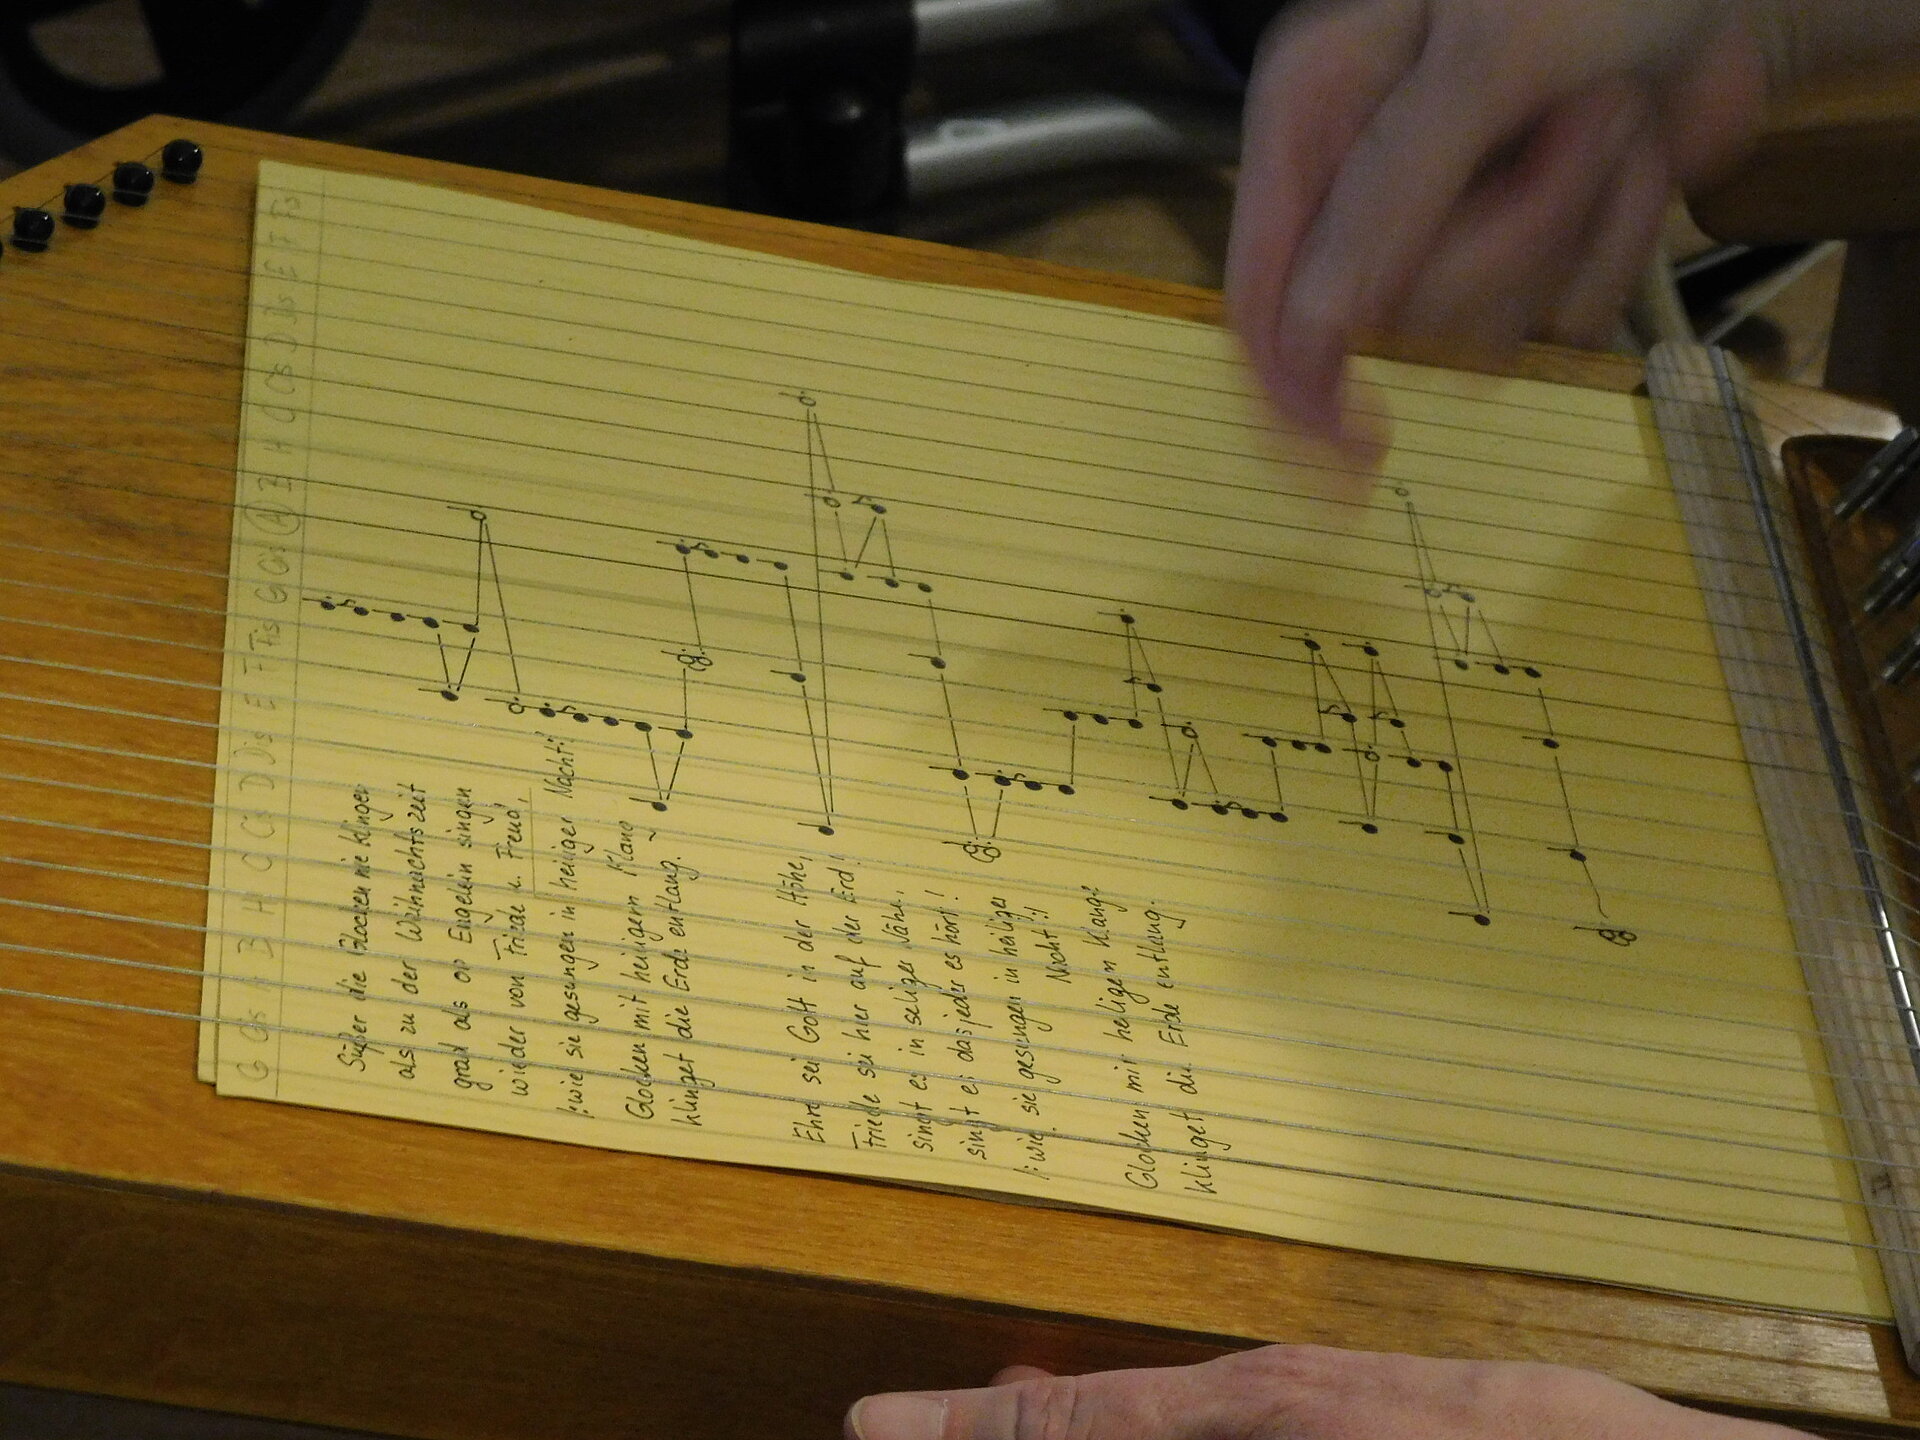 G Gis A B H C Cis D Dis E F Fis G Gis A B H C Cis D Dis E F Fs
Süßer die Glocken nie klingen
als zu der Weihnachtszeit
grad als ob Engelein singen
wieder von Friede u. Freud,
|: wie sie gesungen in heiliger Nacht :|
Glocken mit heiligem Klang
klinget die Erde entlang.
Ehre sei Gott in der Höhe,
Friede sei hier auf der Erd!
singt es in seliger Nähe,
singt es das jeder es hört!
|: wie sie gesungen in heiliger
Nacht :|
Glocken mit heiligem Klange
klinget die Erde entlang.